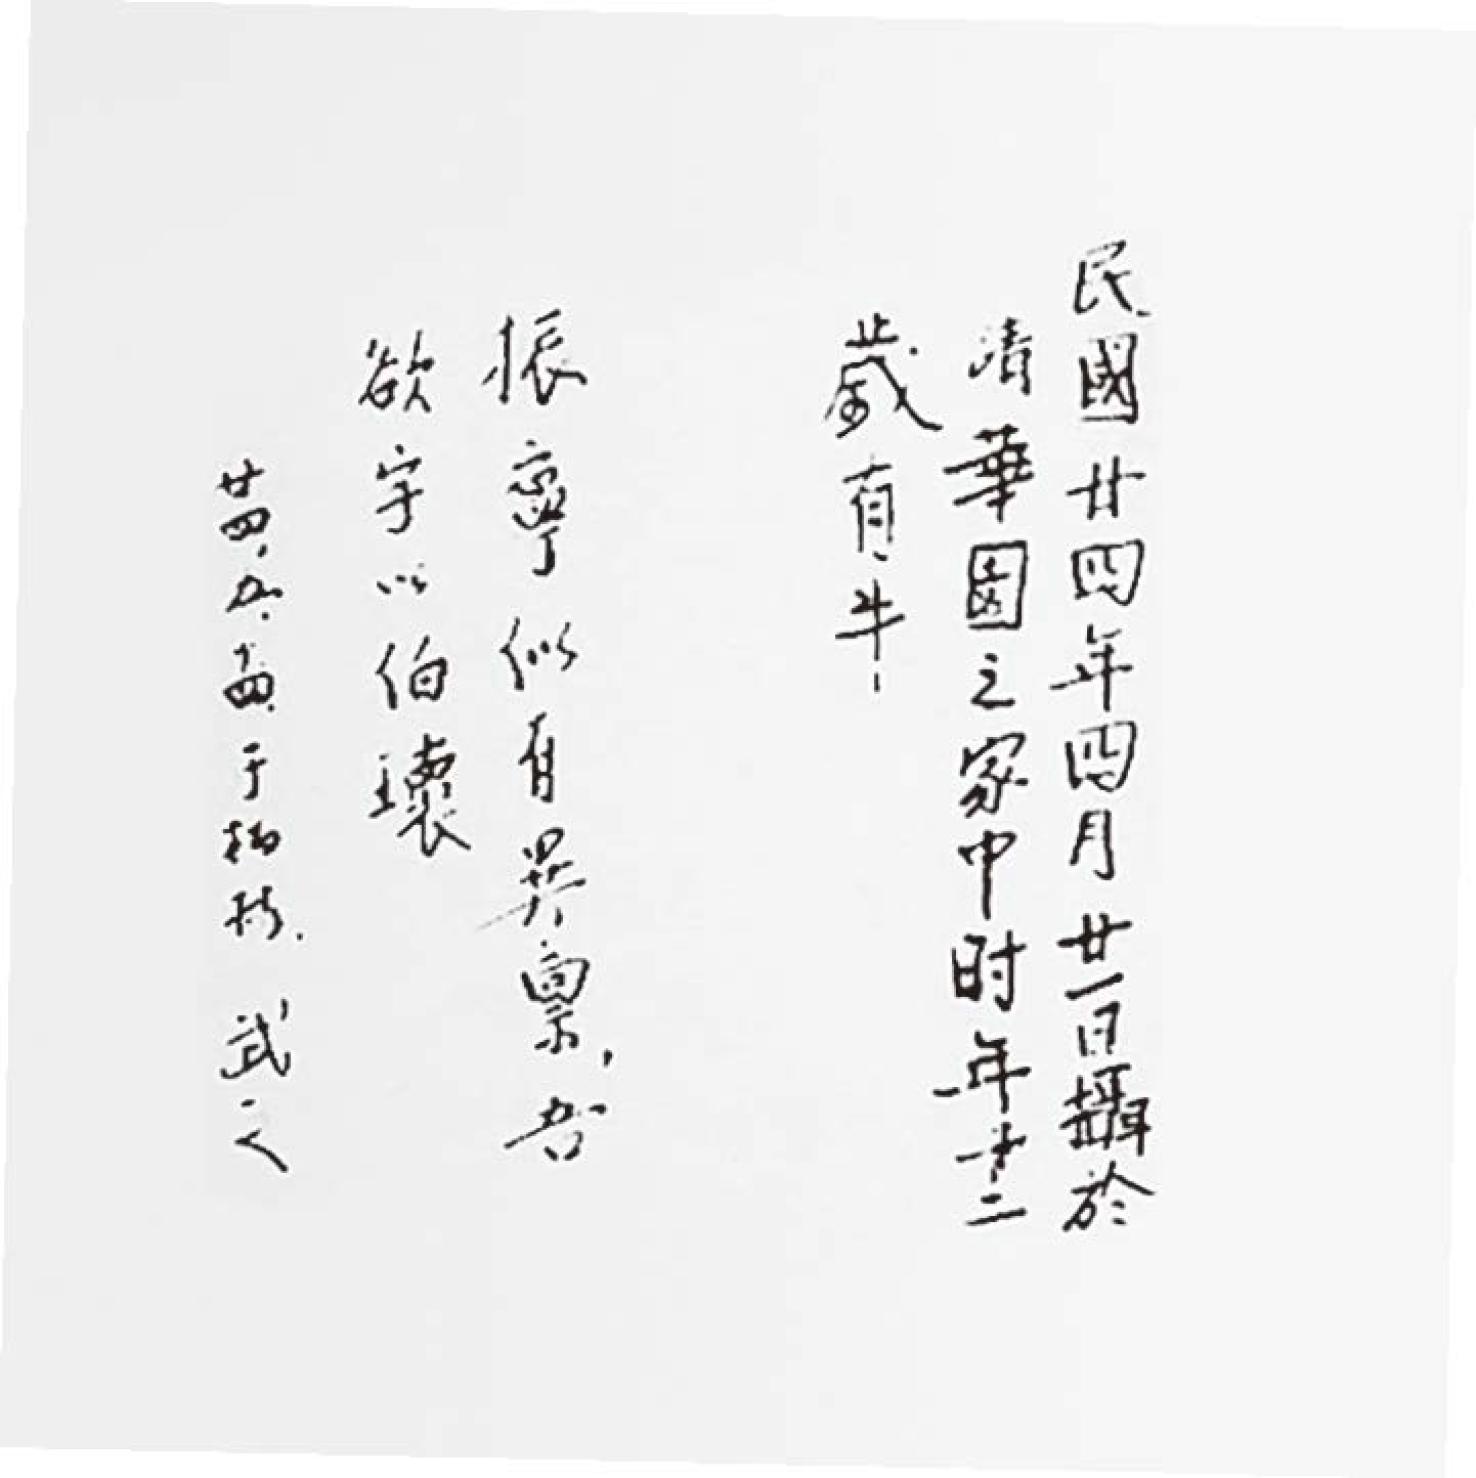 民國廿四年四月廿一日攝於
清華園之家中时年十二
歲有半
振寧似有異禀,吾
欲字以伯瓌
廿四、九、十四、于柏林. 武之